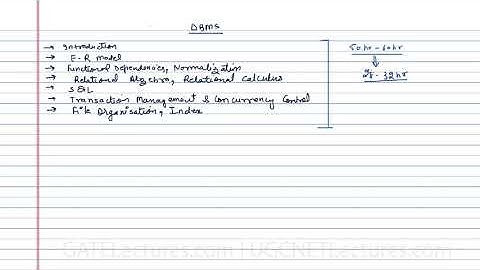 DBMS
→ Introduction
→ E-R model
→ Functional Dependencies, Normalization
→ Relational Algebra, Relational Calculus
→ SQL
→ Transaction Management & Concurrency Control
→ File Organisation, Index
50 hr - 60 hr
28 - 32 hr
GATELectures.com | UGCNETLectures.com